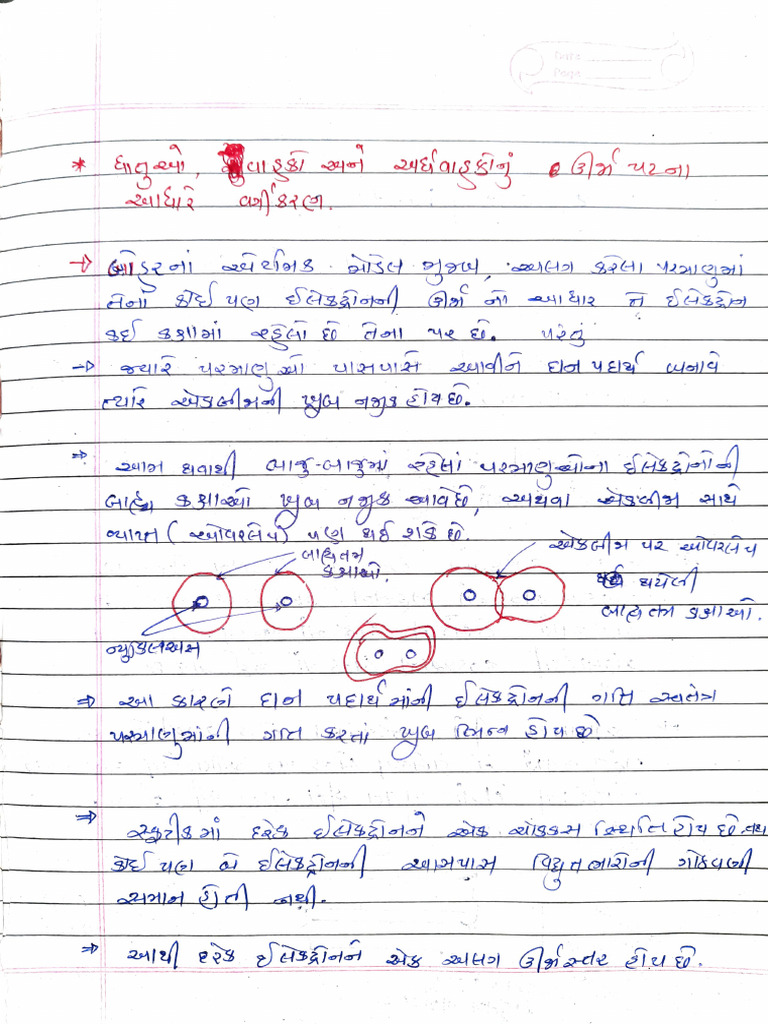 Date
Page
* ધાતુઓ, સુવાહકો અને અર્ધવાહકોનું ઊર્જા પટના
આધારે વર્ગીકરણ.
→ બોહરનાં એટોમિક મોડેલ મુજબ, અલગ કરેલા પરમાણુમાં
તેનાં કોઈ પણ ઈલેક્ટ્રોનની ઊર્જા નો આધાર તે ઈલેક્ટ્રોન
કઈ કક્ષામાં રહેલો છે તેના પર છે. પરંતુ
→ જ્યારે પરમાણુઓ પાસપાસે આવીને ઘન પદાર્થ બનાવે
ત્યારે એકબીજાની ખુબ નજીક હોય છે.
⇒ આમ થવાથી બાજુ-બાજુમાં રહેલાં પરમાણુઓના ઈલેક્ટ્રોનોની
બાહ્ય કક્ષાઓ ખુબ નજીક આવે છે, અથવા એકબીજા સાથે
વ્યાપ્ત (ઓવરલેપ) પણ થઈ શકે છે.
બાહ્યતમ
કક્ષાઓ.
એકબીજા પર ઓવરલેપ
થયેલી
બાહ્યતમ કક્ષાઓ.
ન્યુક્લિઅસ
⇒ આ કારણે ઘન પદાર્થમાંની ઈલેક્ટ્રોનની ગતિ સ્વતંત્ર
પરમાણુમાંની ગતિ કરતાં ખુબ ભિન્ન હોય છે.
⇒ સ્ફટીકમાં દરેક ઈલેક્ટ્રોનને એક ચોક્કસ સ્થિતિ હોય છે તથા
કોઈ પણ બે ઈલેક્ટ્રોનની આસપાસ વિદ્યુતભારોની ગોઠવણી
સમાન હોતી નથી.
⇒ આથી દરેક ઈલેક્ટ્રોનને એક અલગ ઊર્જાસ્તર હોય છે.